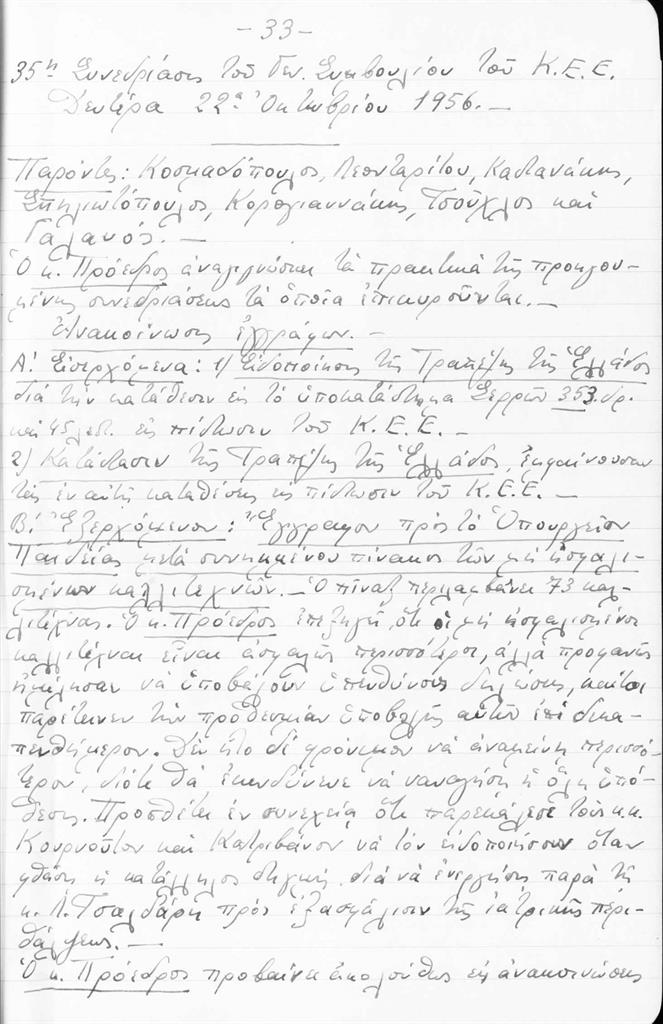 - 33 -
35η Συνεδρίασις τοῦ Γεν. Συμβουλίου τοῦ Κ.Ε.Ε.
Δευτέρα 22α Ὀκτωβρίου 1956. —
Παρόντες: Κοσμαδόπουλος, Λεονταρίτου, Καστανάκης,
Σπηλιωτόπουλος, Κορογιαννάκης, Τσοῦχλος καὶ
Γαλανός. —
Ὁ κ. Πρόεδρος ἀναγιγνώσκει τὰ πρακτικὰ τῆς προηγου-
μένης συνεδριάσεως τὰ ὁποῖα ἐπικυροῦνται. —
Ἀνακοίνωσις ἐγγράφων. —
Α! Εἰσερχόμενα: 1) Εἰδοποίησις τῆς Τραπέζης τῆς Ἑλλάδος
διὰ τὴν κατάθεσιν εἰς τὸ ὑποκατάστημα Σερρῶν 353 δρ.
καὶ 45 λεπ. εἰς πίστωσιν τοῦ Κ.Ε.Ε. —
2) Κατάστασιν τῆς Τραπέζης τῆς Ἑλλάδος, ἐμφαίνουσαν
τὰς ἐν αὐτῇ καταθέσεις εἰς πίστωσιν τοῦ Κ.Ε.Ε. —
Β! Ἐξερχόμενον: Ἔγγραφον πρὸς τὸ Ὑπουργεῖον
Παιδείας μετὰ συνημμένου πίνακος τῶν μὴ ἠσφαλι-
σμένων καλλιτεχνῶν. — Ὁ πίναξ περιλαμβάνει 73 καλ-
λιτέχνας. Ὁ κ. Πρόεδρος ἐπεξηγεῖ, ὅτι οἱ μὴ ἠσφαλισμένοι
καλλιτέχναι εἶναι ἀσφαλῶς περισσότεροι, ἀλλὰ προφανῶς
ἠμέλησαν νὰ ὑποβάλουν ὑπευθύνους δηλώσεις, καίτοι
παρέτεινεν τὴν προθεσμίαν ὑποβολῆς αὐτῶν ἐπὶ δεκα-
πενθήμερον. Δὲν ἦτο δὲ φρόνιμον νὰ ἀναμείνῃ περισσό-
τερον, διότι θὰ ἐκινδύνευε νὰ ναυαγήσῃ ἡ ὅλη ὑπό-
θεσις. Προσθέτει ἐν συνεχείᾳ ὅτι παρεκάλεσε τοὺς κ.κ.
Κουρνοῦτον καὶ Κατριβάνον νὰ τὸν εἰδοποιήσουν ὅταν
φθάσῃ ἡ κατάλληλος στιγμὴ, διὰ νὰ ἐνεργήσῃ παρὰ τῇ
κ. Λ. Τσαλδάρη πρὸς ἐξασφάλισιν τῆς ἰατρικῆς περι-
θάλψεως. —
Ὁ κ. Πρόεδρος προβαίνει ἀκολούθως εἰς ἀνακοινώσεις